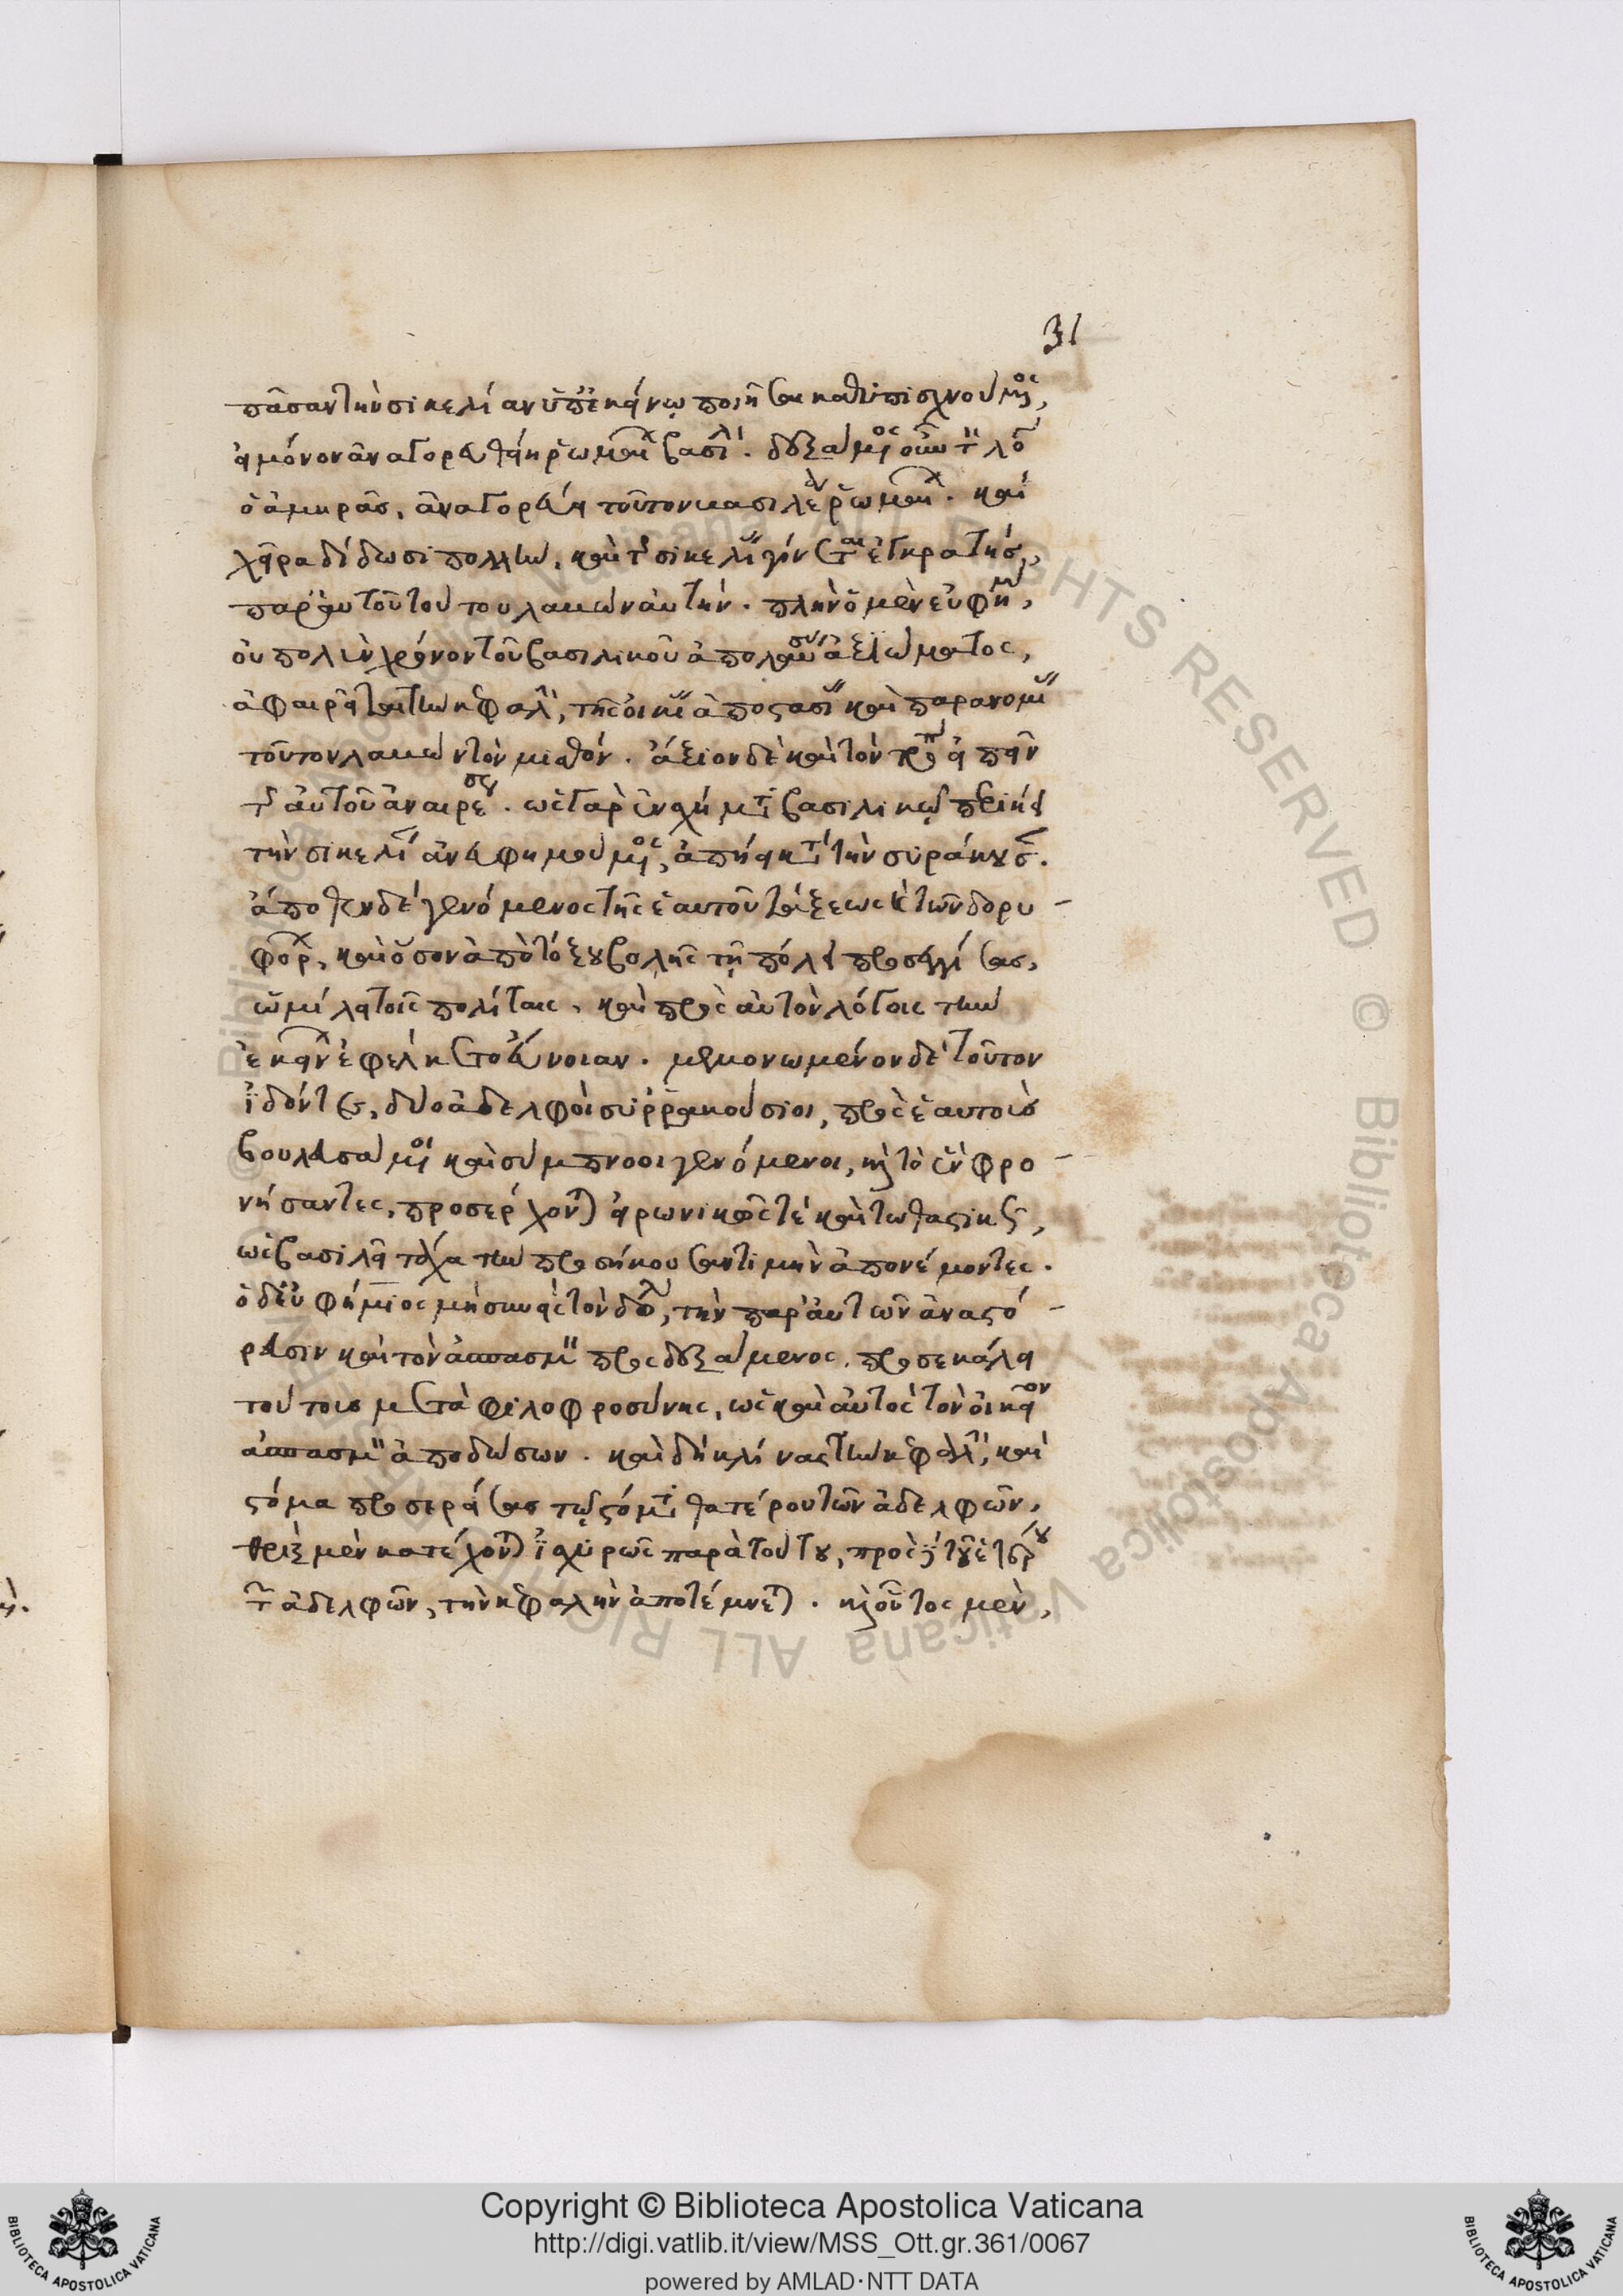 31
πᾶσαν τὴν σικελίαν ὑπ' ἐκείνω ποιῆσαι καθυπισχνούμενος,
εἰ μόνον ἀναγορευθείη ῥωμαίων βασιλεύς. δεξάμενος οὖν τὸν λόγον
ὁ ἀμηρᾶς, ἀναγορεύει τοῦτον βασιλέα ῥωμαίων. καὶ
χεῖρα δίδωσι πολλὴν. καὶ τῆς σικελίας γίνεται ἐγκρατὴς,
παρ' αὐτοῦ τούτου λαβὼν αὐτήν. πλὴν ὁ μὲν εὐφήμιος,
οὐ πολὺν χρόνον τοῦ βασιλικοῦ ἀπολαύσας ἀξιώματος,
ἀφαιρεῖται τὴν κεφαλήν, τῆς οἰκείας ἀποστασίας καὶ παρανομίας
τοῦτον λαβὼν τὸν μισθόν. ἄξιον δὲ καὶ τὸν τρόπον εἰπεῖν
τῆς αὐτοῦ ἀναιρέσεως. ὡς γὰρ ἐν σχήματι βασιλικῷ περιῄει
τὴν σικελίαν εὐφημούμενος, ἀπῄει κατὰ τὴν συράκουσαν.
ἄποθεν δὲ γενόμενος τῆς ἑαυτοῦ τάξεως καὶ τῶν δορυ-
φόρων, καὶ ὅσον ἀπὸ τόξου βολῆς τῇ πόλει προσεγγίσας,
ὡμίλει τοῖς πολίταις. καὶ πρὸς αὐτὸν λόγοις τὴν
ἐκείνων ἐφείλκετο εὔνοιαν. μεμονωμένον δὲ τοῦτον
ἰδόντες, δύο ἀδελφοὶ συῤῥακούσιοι, πρὸς ἑαυτοὺς
βουλευσάμενοι καὶ σύμπνοοι γενόμενοι, καὶ τὸ ἓν φρο-
νήσαντες, προσέρχονται εἰρωνικῶς τέ καὶ τωθαστικῶς,
ὡς βασιλεῖ τάχα τὴν προσήκουσαν τιμὴν ἀπονέμοντες.
ὁ δὲ εὐφήμιος μὴ συνεὶς τὸν δόλον, τὴν παρ' αὐτῶν ἀναγό-
ρευσιν καὶ τὸν ἀσπασμὸν προσδεξάμενος. προσεκάλει
τούτους μετὰ φιλοφροσύνης, ὡς καὶ αὐτὸς τὸν οἰκεῖον
ἀσπασμὸν ἀποδώσων. καὶ δὴ κλίνας τὴν κεφαλήν, καὶ
στόμα προσερείσας τῷ στόματι θατέρου τῶν ἀδελφῶν,
θριξὶ μὲν κατέχονται ἰσχυρῶς παρὰ τούτου, πρὸς δὲ τοῦ ἑτέρου
τῶν ἀδελφῶν, τὴν κεφαλὴν ἀποτέμνεται. καὶ οὗτος μὲν,
Copyright © Biblioteca Apostolica Vaticana
http://digi.vatlib.it/view/MSS_Ott.gr.361/0067
powered by AMLAD·NTT DATA